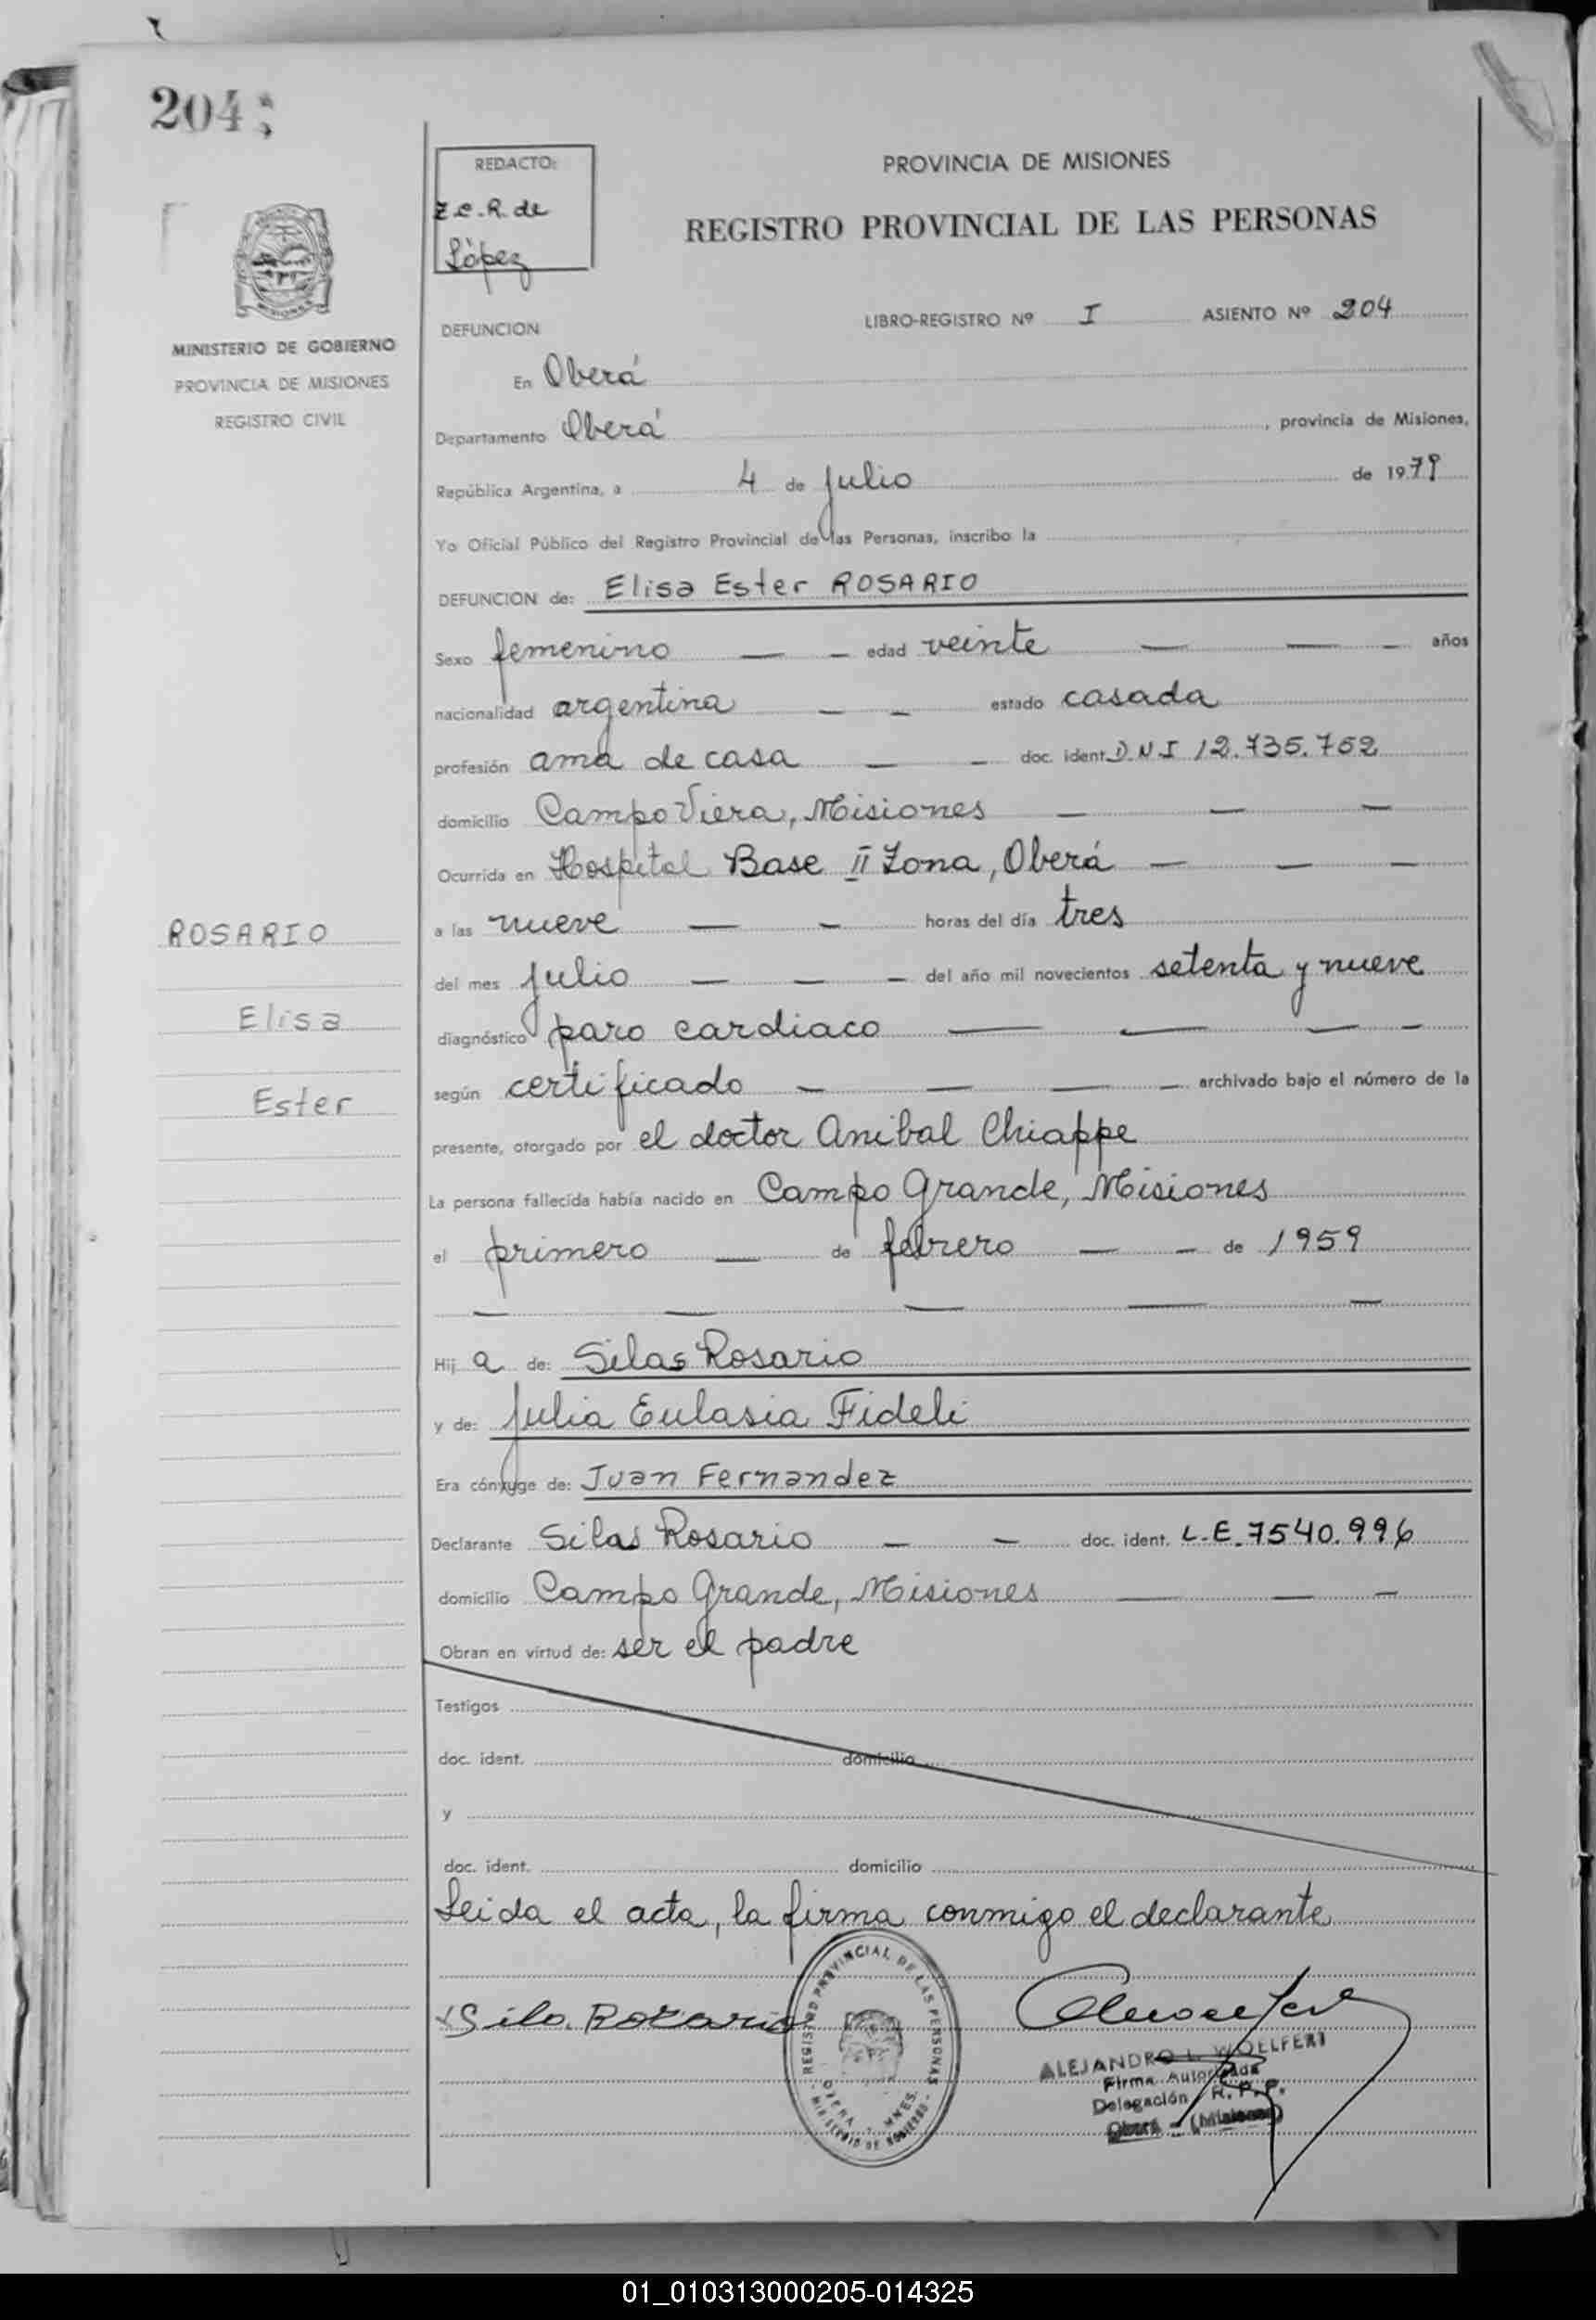 204
REDACTO:
Z.C.R. de
López
MINISTERIO DE GOBIERNO
PROVINCIA DE MISIONES
REGISTRO CIVIL
PROVINCIA DE MISIONES
REGISTRO PROVINCIAL DE LAS PERSONAS
LIBRO-REGISTRO Nº I ASIENTO Nº 204
DEFUNCION
En Oberá
Departamento Oberá, provincia de Misiones,
República Argentina, a 4 de julio de 1979
Yo Oficial Público del Registro Provincial de las Personas, inscribo la
DEFUNCION de: Elisa Ester ROSARIO
Sexo femenino — — edad veinte — — — años
nacionalidad argentina — — estado casada
profesión ama de casa — — doc. ident. D.N.I 12.735.752
domicilio Campo Viera, Misiones — — —
Ocurrida en Hospital Base II Zona, Oberá — — —
a las nueve — — horas del día tres
del mes julio — — — del año mil novecientos setenta y nueve
diagnóstico paro cardiaco — — — —
según certificado — — — — archivado bajo el número de la
presente, otorgado por el doctor Anibal Chiappe
La persona fallecida había nacido en Campo Grande, Misiones
el primero — de febrero — — de 1959
— — — — —
Hij a de: Silas Rosario
y de: Julia Eulasia Fideli
Era cónyuge de: Juan Fernandez
Declarante Silas Rosario — — doc. ident. L.E. 7540.996
domicilio Campo Grande, Misiones — — —
Obran en virtud de: ser el padre
Testigos
doc. ident. domicilio
y
doc. ident. domicilio
Leida el acta, la firma conmigo el declarante
Silo. Rozario
ROSARIO
Elisa
Ester
REGISTRO PROVINCIAL DE LAS PERSONAS
OBERA - MNES.
MINISTERIO DE GOBIERNO
ALEJANDRO L. WOELFERT
Firma Autorizada
Delegación R.P.P.
Oberá - (Misiones)
01_010313000205-014325